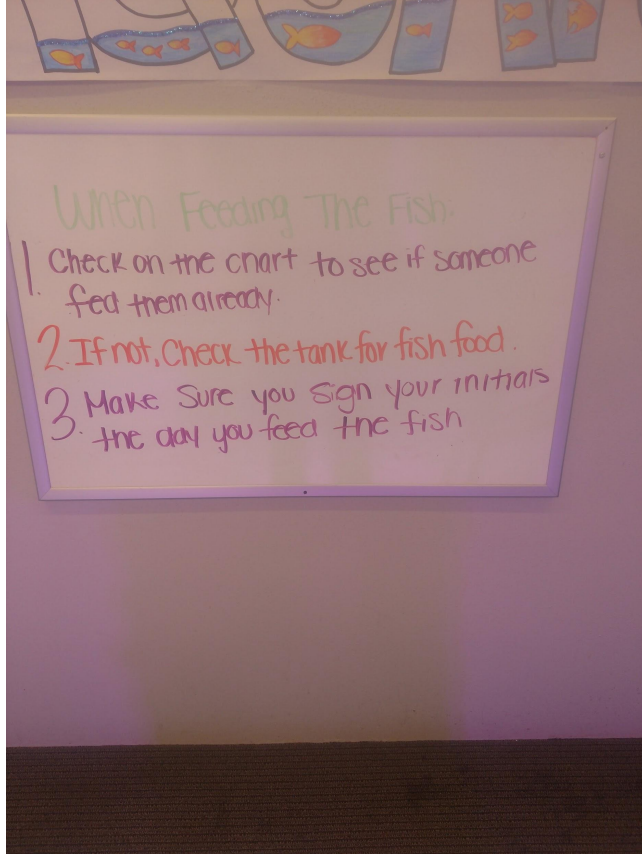 When Feeding The Fish:
1. Check on the chart to see if someone
fed them already.
2. If not, Check the tank for fish food.
3. Make Sure you Sign your initials
the day you feed the fish